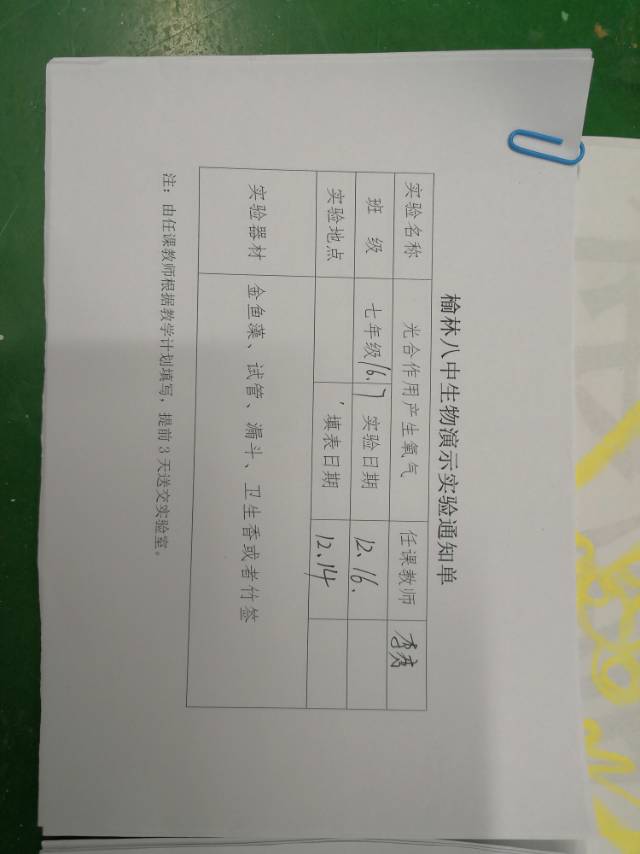 榆林八中生物演示实验通知单
实验名称 光合作用产生氧气 任课教师 李
班 级 七年级16.7 实验日期 12.16.
实验地点 填表日期 12.14
实验器材 金鱼藻、试管、漏斗、卫生香或者竹签
注：由任课教师根据教学计划填写，提前3天送交实验室。